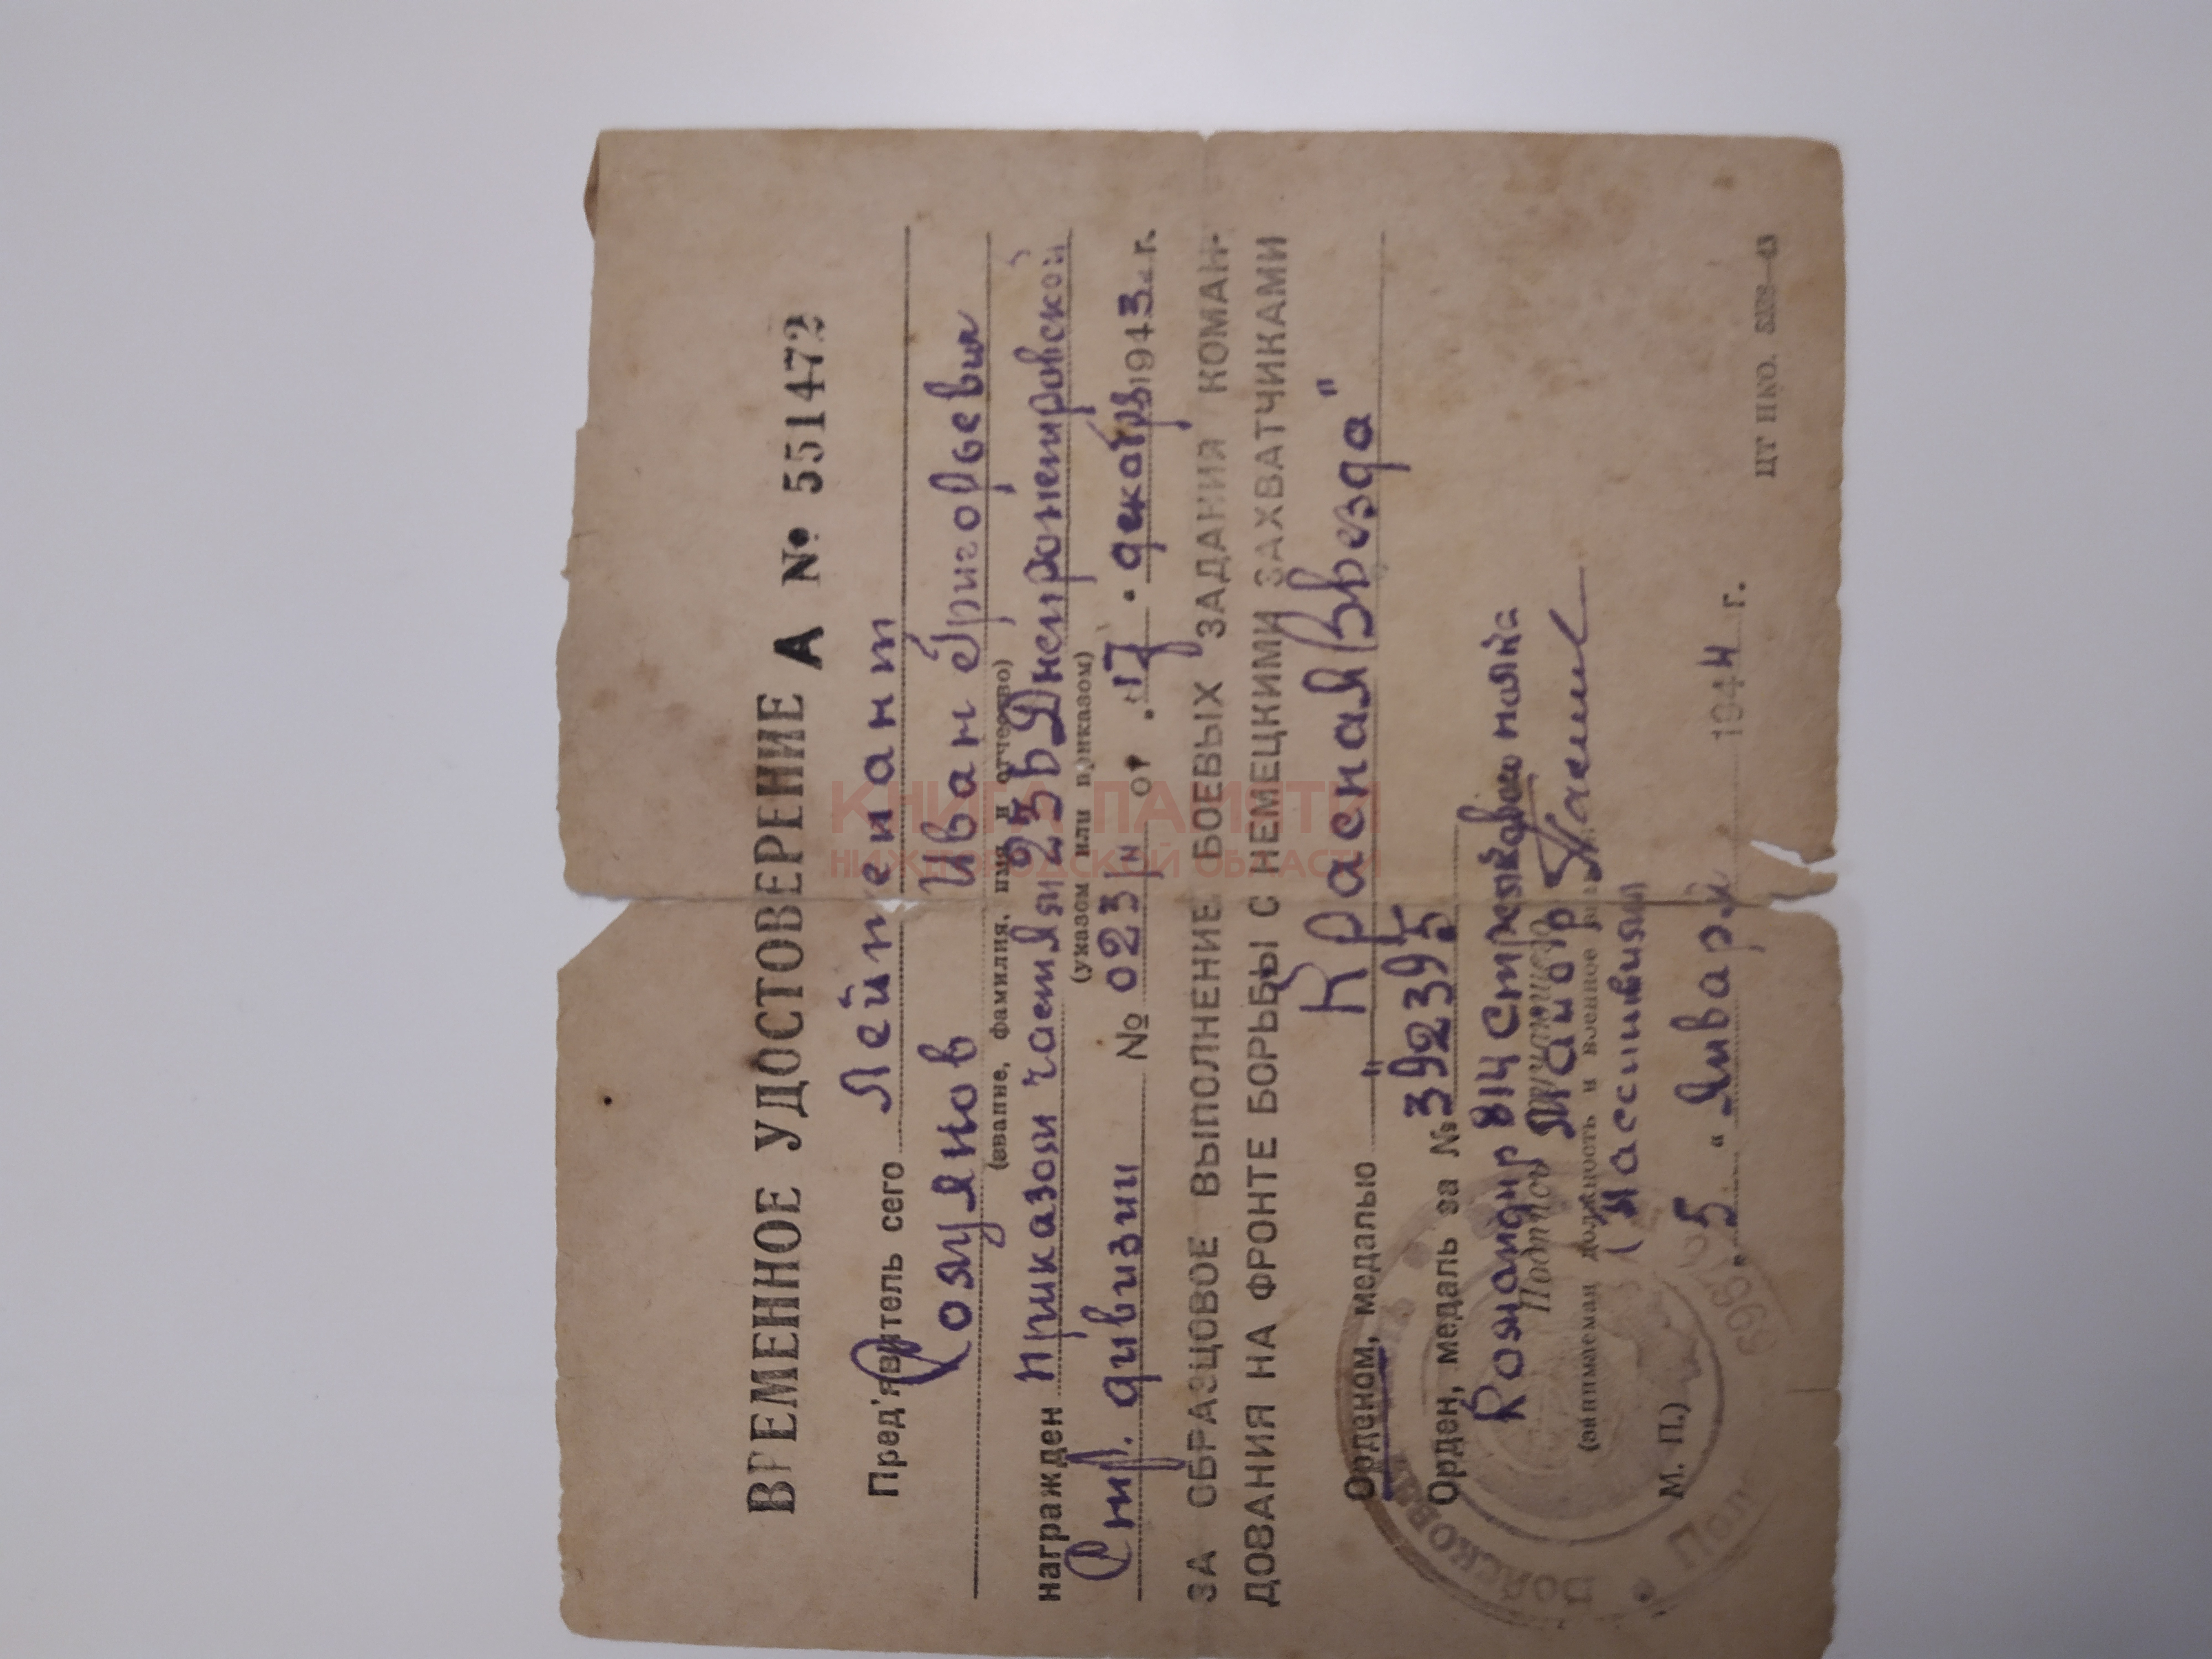 ВРЕМЕННОЕ УДОСТОВЕРЕНИЕ А № 551472
Пред'явитель сего Лейтенант
Иван Григорьевич
(звание, фамилия, имя и отчество)
награжден приказом частям 236 Днепропетровской
(указом или приказом)
Стр. дивизии № 023/н от "17" декабр 1943 г.
ЗА ОБРАЗЦОВОЕ ВЫПОЛНЕНИЕ БОЕВЫХ ЗАДАНИЙ КОМАН-
ДОВАНИЯ НА ФРОНТЕ БОРЬБЫ С НЕМЕЦКИМИ ЗАХВАТЧИКАМИ
Орденом, медалью "Красная Звезда"
Орден, медаль за № 392395
Командир 814 Стрелкового полка
Подпись Майор
(занимаемая должность и военное
М. П.)
"5" Января 1944 г.
ЦТ НКО.
КНИГА ПАМЯТИ
НИЖЕГОРОДСКОЙ ОБЛАСТИ